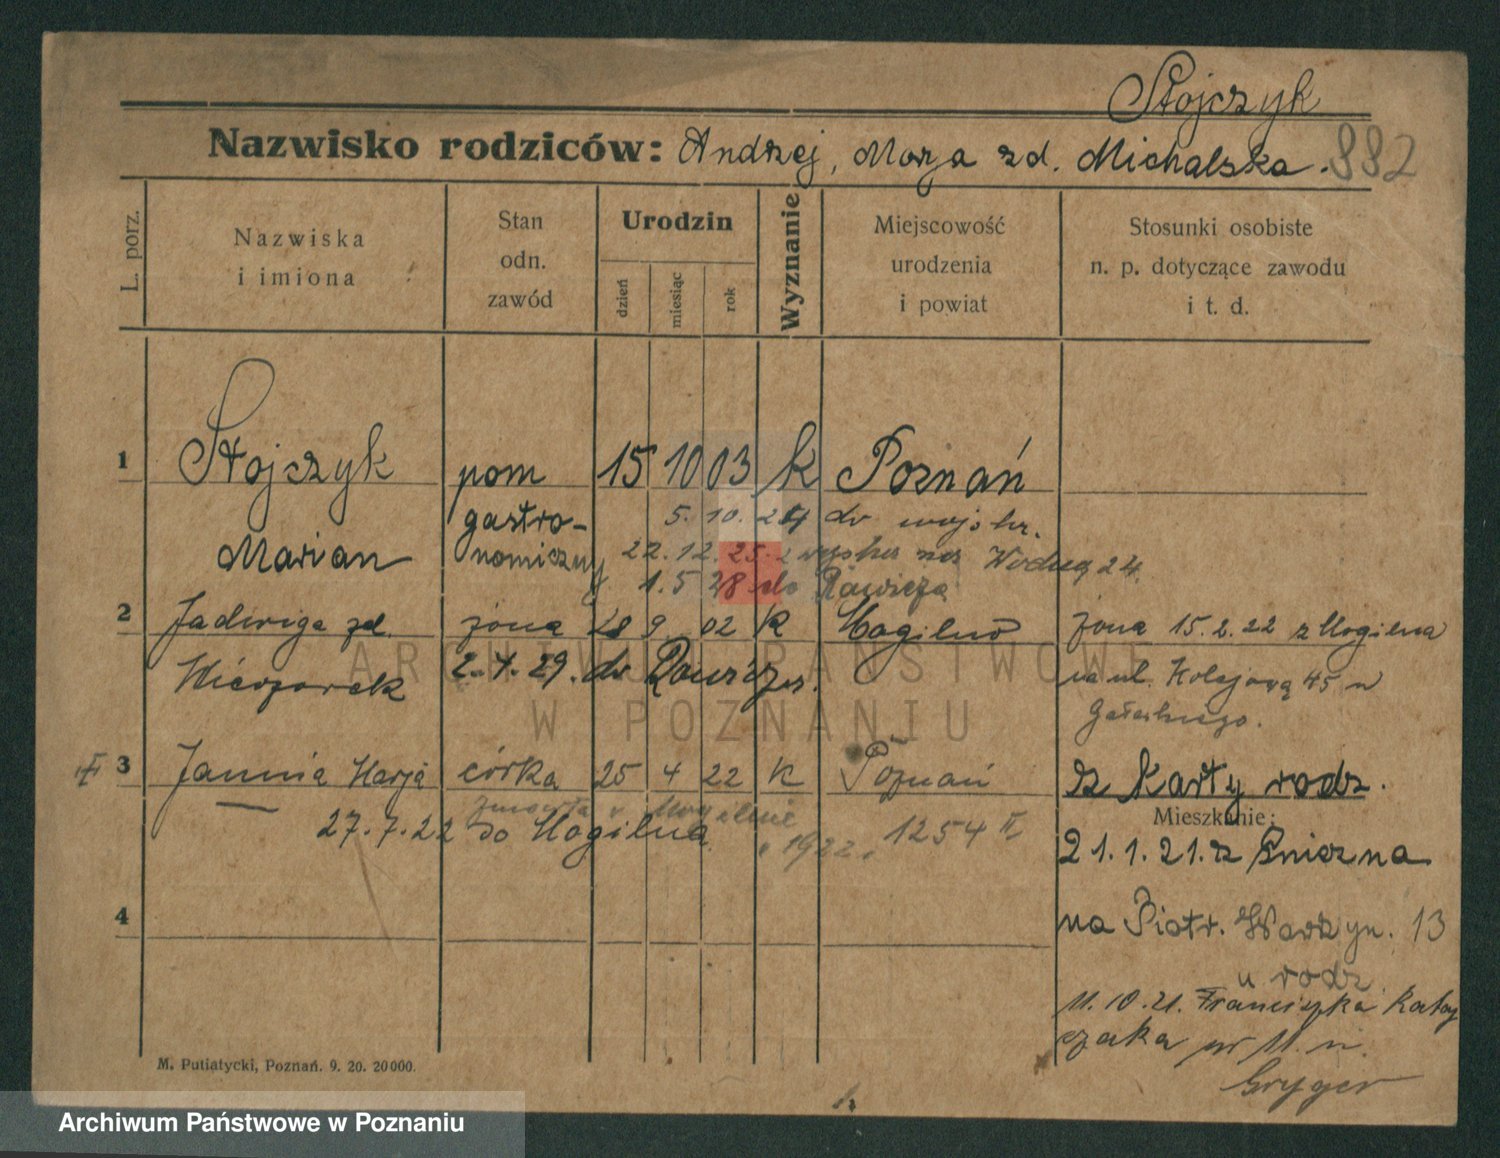 Stojczyk
Nazwisko rodziców: Andrzej, Marja zd. Michalska. 882
L. porz.
Nazwiska i imiona
Stan odn. zawód
Urodzin
dzień
miesiąc
rok
Wyznanie
Miejscowość urodzenia i powiat
Stosunki osobiste n. p. dotyczące zawodu i t. d.
1 Stojczyk pom 15 10 03 k Poznań
gastro- 5. 10. 24 do wojska.
Marian nomiczny 22. 12. 25. z wojska na Wodną 24.
1. 5 28 do Rawicza
2 Jadwiga zd. żona 28 9 02 k Mogilno żona 15. 2. 22 z Mogilna
Wieczorek 2. 4. 29. do Rawicza. na ul. Kolejową 45 u
3 Janina Marja córka 25 4 22 k Poznań z Karty rodz.
zmarła w Mogilnie
27. 7. 22 do Mogilna 1922. 1254 II
Mieszkanie:
21. 1. 21. z Gniezna
4
na Piotr. Wawrzyn. 13
u rodz.
11. 10. 21. Franciszka
u
Gryger
M. Putiatycki, Poznań. 9. 20. 20000.
ARCHIWUM PAŃSTWOWE
W POZNANIU
Archiwum Państwowe w Poznaniu